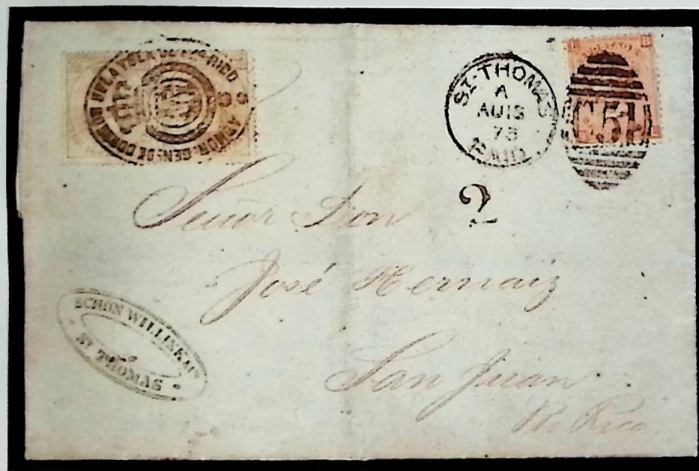 ADMOR. GEN. DE CORREO DE LA YSLA DE PTO-RICO
ST. THOMAS
A
AU 18
73
PAID
C51
2
Señor Don
José Hernaiz
San Juan
Pto Rico
SCHÖN WILLINK & Co
ST THOMAS